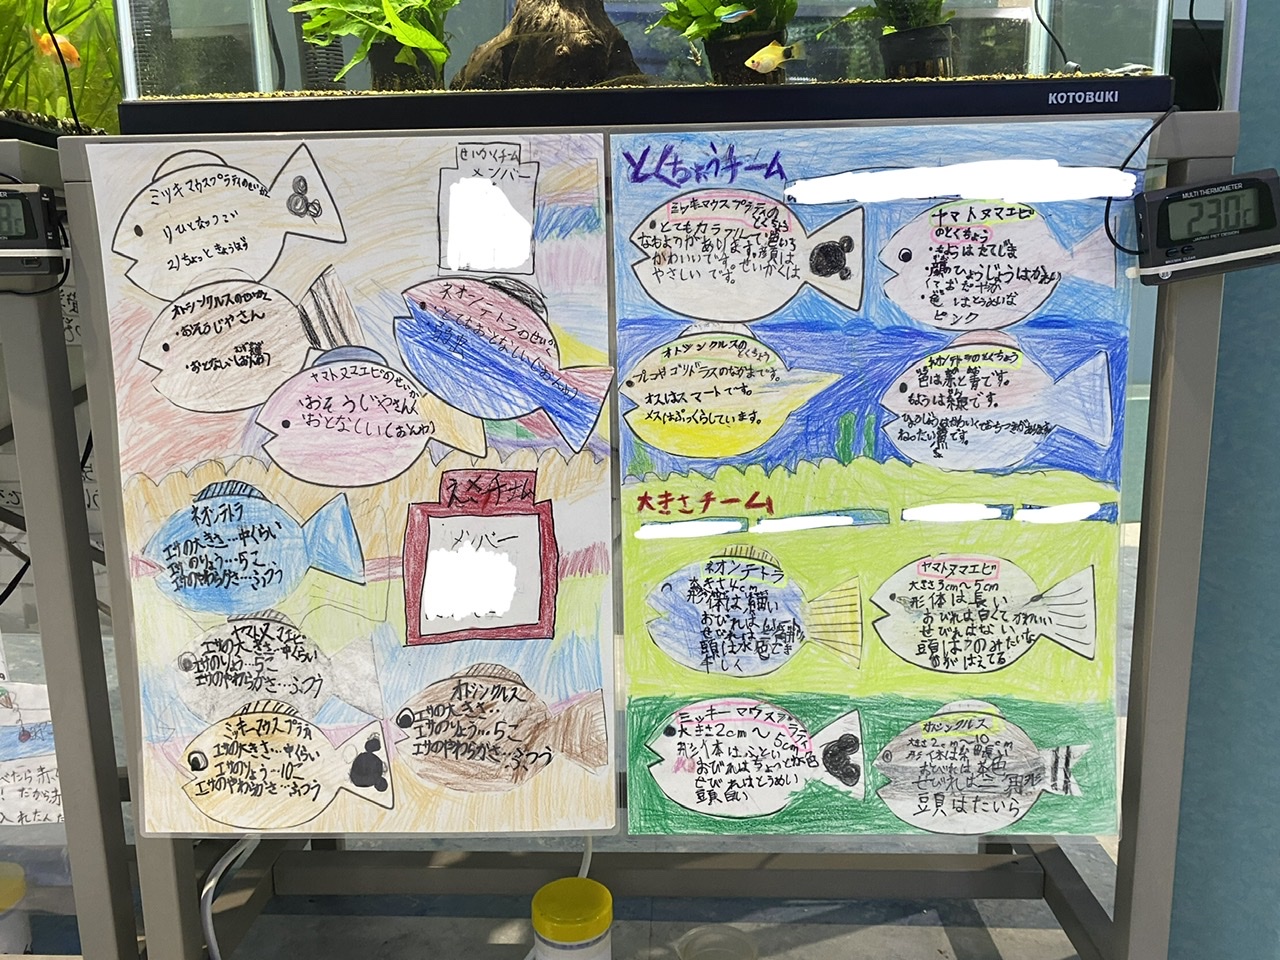 KOTOBUKI
MULTI THERMOMETER
23.0
せいかくチーム
メンバー
ミツキマウスプラティのせいかく
1)ひとなつっこい
2)ちょっときょうぼう
オトシンクルスのせいかく
・おそうじやさん
・おとなしい(おんわ)
ネオンテトラのせいかく
・とてもおとなしい(おんわ)
・弱虫
ヤマトヌマエビのせいかく
・おそうじやさん
・おとなしい(おんわ)
えさチーム
メンバー
ネオンテトラ
エサの大きさ…中くらい
エサのりょう…5こ
エサのやわらかさ…ふつう
ヤマトヌマエビ
エサの大きさ…中くらい
エサのりょう…5こ
エサのやわらかさ…ふつう
ミッキーマウスプラティ
エサの大きさ…中くらい
エサのりょう…10こ
エサのやわらかさ…ふつう
オトシンクルス
エサの大きさ…
エサのりょう…5こ
エサのやわらかさ…ふつう
とくちょうチーム
ミッキーマウスプラティの
とくちょう
とてもカラフルで色いろ
なもようがあります。顔は
かわいいです。せいかくは
やさしいです。
ヤマトヌマエビ
のとくちょう
・もようはたてじま
・顔 ひょうじょうはかわい
くておだやか
・色 はとうめいな
ピンク
オトシンクルスの
とくちょう
プレコやコリドラスのなかまです。
オスはスマートです。
メスはぷっくらしています。
ネオンテトラのとくちょう
色は赤と青です。
もようは線です。
ねったい魚です。
大きさチーム
ネオンテトラ
大きさ4cm
形体は細い
おびれは
せびれは三角形
頭は水色で
ヤマトヌマエビ
大きさ3cm〜5cm
形体は長い
おびれは白くてかわいい
せびれはない
頭は?のみたいな
がはえてる
ミッキーマウスプラティ
大きさ2cm〜5cm
形体はふとい
おびれはちょっと
せびれはとうめい
頭白い
オトシンクルス
大きさ2cm〜10cm
おびれは茶色
せびれは三角形
頭はたいら